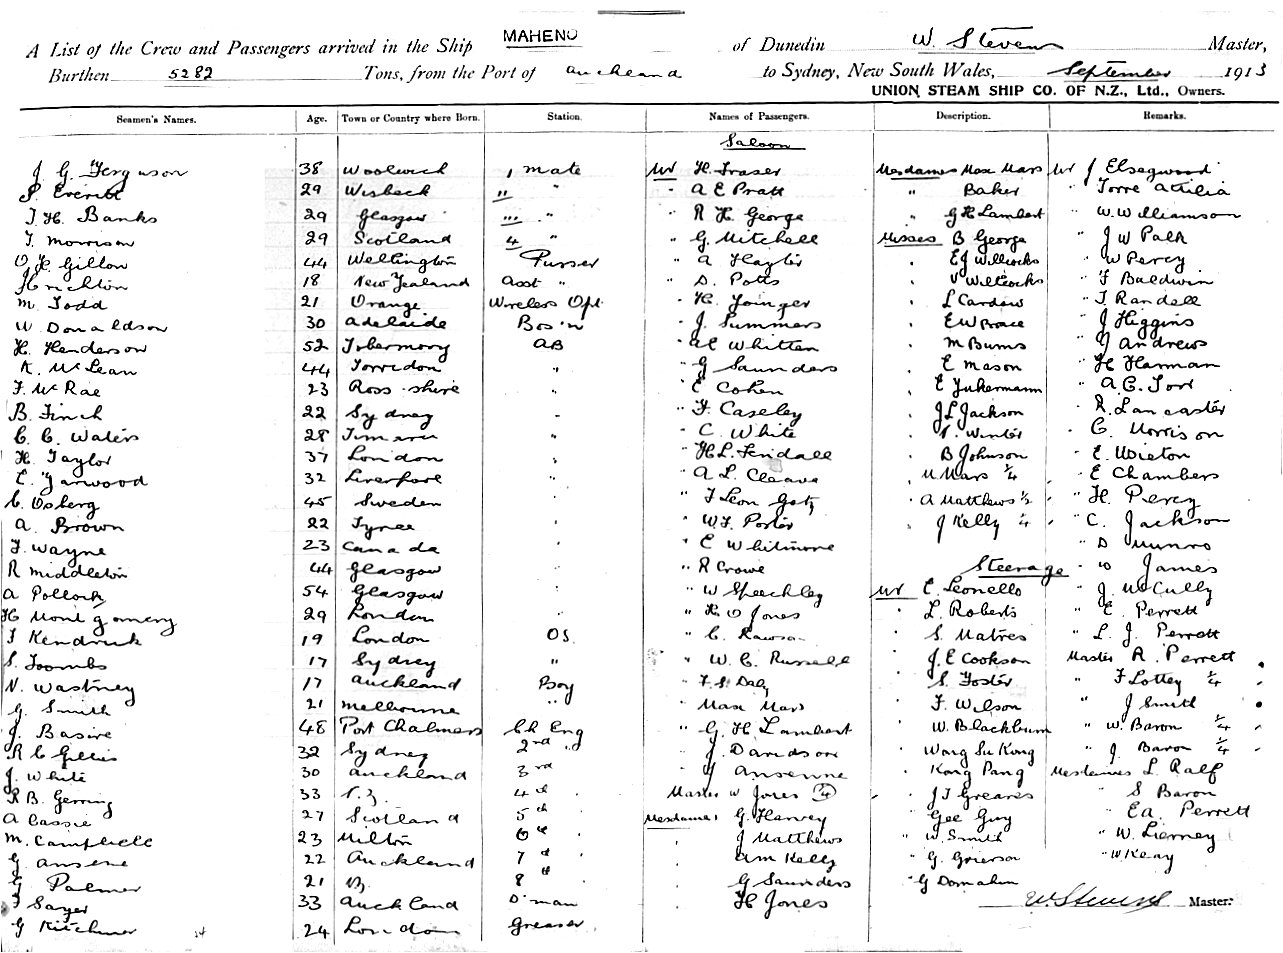 A List of the Crew and Passengers arrived in the Ship MAHENO of Dunedin W. Stevens Master,
Burthen 5282 Tons, from the Port of Auckland to Sydney, New South Wales, September 1913
UNION STEAM SHIP CO. OF N.Z., Ltd., Owners.
Seamen's Names. Age. Town or Country where Born. Station. Names of Passengers. Description. Remarks.
Saloon
J G Ferguson 38 Woolwich 1 mate Mr H. Fraser Mesdames Max Mars Mr J Elsegwood
P. Everitt 29 Wisbeck 11 " " A E Pratt " Baker " Torre Attilia
J. H. Banks 29 Glasgow 111 " " R H. George " G H Lambert " W. Williamson
J. Morrison 29 Scotland 4 " " G. Mitchell Misses B George " J W Palk
O H Gillon 44 Wellington Purser " A Hayter " E J Willcocks " W Percy
18 New Zealand Asst " " S. Potts " V Willcocks " F Baldwin
M. Todd 21 Orange Wireless Opt " H. Joinger " L Cardow " T Randell
W Donaldson 30 Adelaide Bos'n " J. Summers " E W Brace " J Higgins
H. Henderson 52 Tobermory AB " A E Whitten " M Burns " J Andrews
K. McLean 44 Torridon " " G Saunders " E Mason " H Harman
F. McRae 23 Ross-shire " " E Cohen " E Jukermann " A C. Torr
B. Finch 22 Sydney " " F. Caseley " J L Jackson " R. Lancaster
C. C. Waters 28 Timaru " " C. White " V. Winter " C. Morrison
H. Taylor 37 London " " H. L. Tindall " B Johnson " E.
E. Yarwood 32 Liverpool " " A L. Cleave " M Mars ¼ " E Chambers
C. Osberg 45 Sweden " " J Leon Gotz " A Matthews ½ " H. Percy
A. Brown 22 Tyree " " W. F. Porter " J Kelly ¼ " C. Jackson
F. Wayne 23 Canada " " E Whitmore " D Munro
R Middleton 44 Glasgow " " R Crowe Steerage " W James
A Pollock 54 Glasgow " " W Speechley Mr E. Leonello " J. McCully
H Montgomery 29 London " " H. O Jones " L. Roberts " E. Perrett
F Kendrick 19 London OS. " C. Rawson " S. Matres " L. J. Perrett
S. Toombs 17 Sydney " " W. C. Russell " J. E Cookson Master R. Perrett
N. Wastney 17 Auckland Boy " F. S. Daly " S. Foster " F Lottey ¼
G. Smith 21 Melbourne " " Max Mars " F. Wilson " J Smith
J. Basire 48 Port Chalmers Ch Eng " G. H. Lambert " W. Blackburn " W. Baron ¼
R C Gillies 32 Sydney 2nd " " J. Davidson " Wong Su Kong " J Baron ¼
J. White 30 Auckland 3rd " J Ansenne " Kong Pang Mesdames L. Ralf
R B. Gerring 33 N.Z. 4th Master W Jones ¼ " J T Greaves " S Baron
A Cassie 27 Scotland 5th Mesdames G. Harvey " Gee Guy " E A. Perrett
M. Campbell 23 Milton 6th " J Matthews " W. Smith " W. Tierney
G. Ansene 22 Auckland 7th " A M Kelly " G. Grierson " W Keay
G Palmer 21 8th " G Saunders " G Domahim
F Sayer 33 Auckland D'man " H Jones W. Stevens Master.
G Kitchner 24 London Greaser